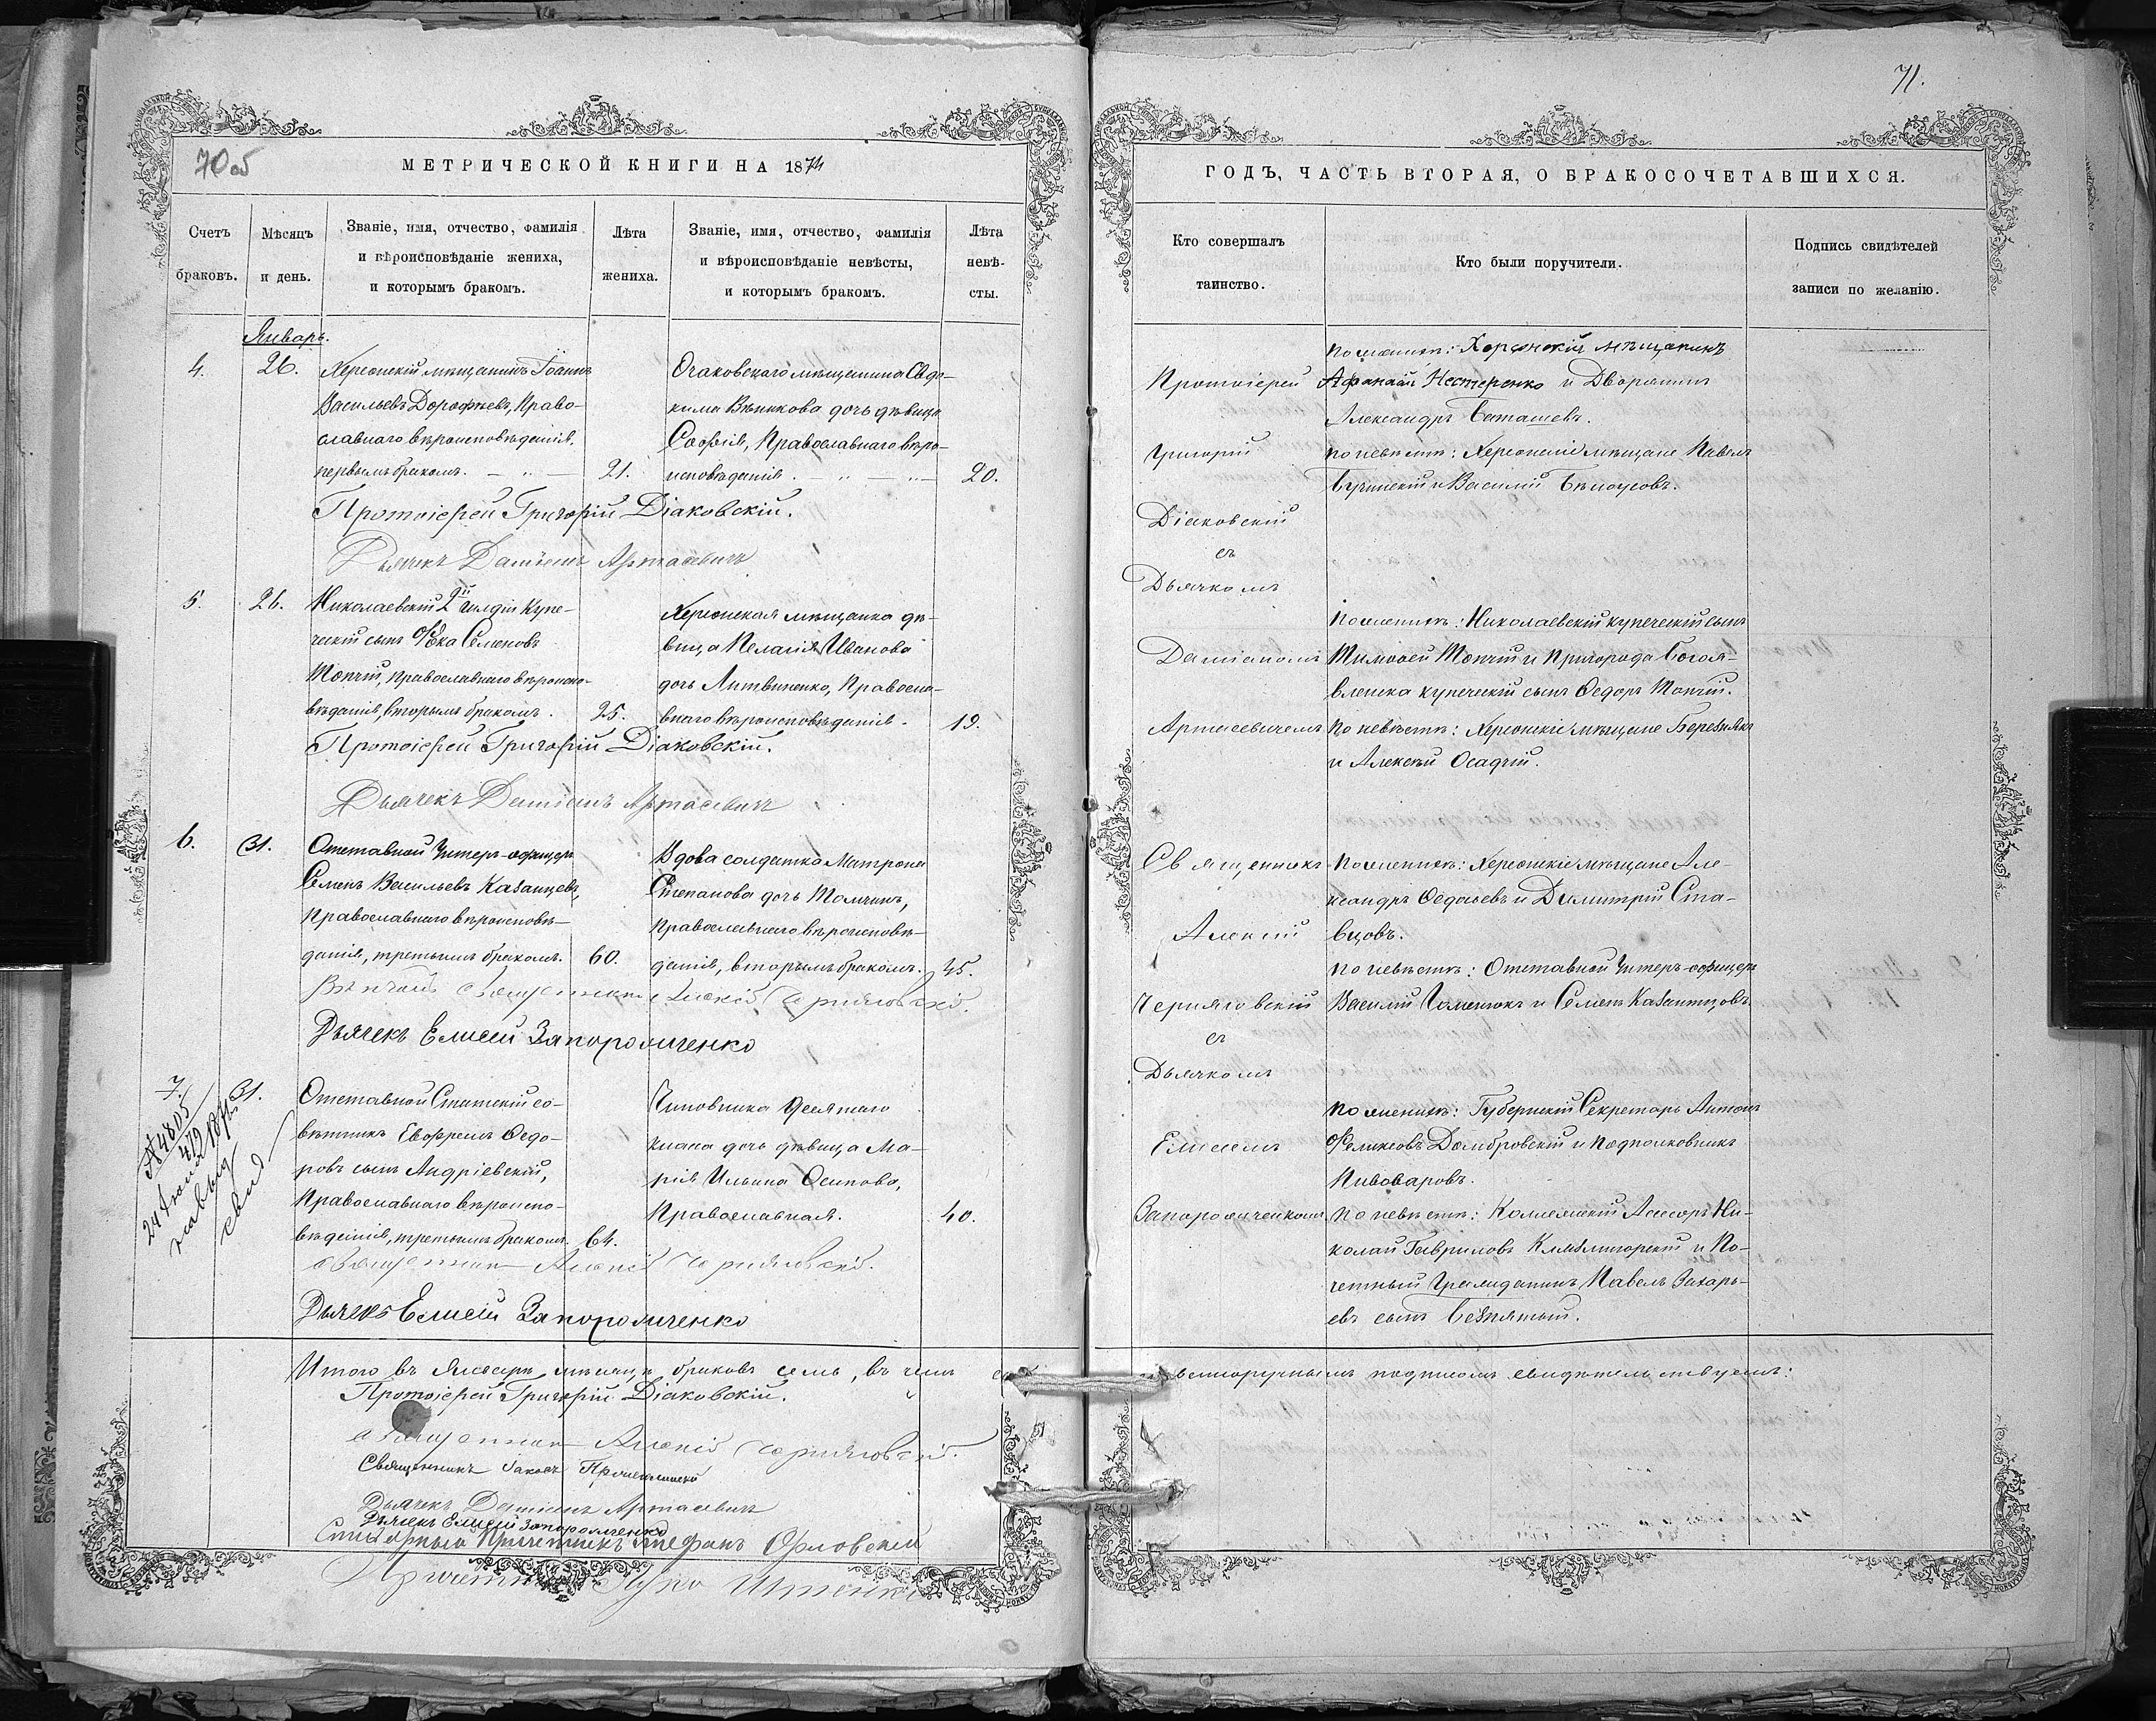 70об
МЕТРИЧЕСКОЙ КНИГИ НА 1874
Счетъ браковъ.
Мѣсяцъ и день.
Званіе, имя, отчество, фамилія
и вѣроисповѣданіе жениха,
и которымъ бракомъ.
Лѣта жениха.
Званіе, имя, отчество, фамилія
и вѣроисповѣданіе невѣсты,
и которымъ бракомъ.
Лѣта невѣ-
сты.
Январь.
4.
26.
Херсонскій мѣщанинъ Іоаннъ
Васильевъ Дорофѣевъ, Право-
славнаго вѣроисповѣданія,
первымъ бракомъ.
21.
Очаковскаго мѣщанина Евдо-
кима Вѣникова дочь дѣвица
Софія, Православнаго вѣро-
исповѣданія.
20.
Протоіерей Григорій Діаковскій.
Дьячекъ Даміанъ Артасевичъ
5.
26.
Николаевскій 2й гилдіи Купе-
ческій сынъ Ѳока Семеновъ
Топчій, православнаго вѣроиспо-
вѣданія, вторымъ бракомъ.
25.
Херсонская мѣщанка дѣ-
вица Пелагія Иванова
дочь Литвиненко, Правосла-
внаго вѣроисповѣданія.
19.
Протоіерей Григорій Діаковскій.
Дьячекъ Даміанъ Артасевичъ
6.
31.
Отставной Унтеръ-офицеръ
Семенъ Васильевъ Казанцевъ,
Православнаго вѣроисповѣ-
данія, третьимъ бракомъ.
60.
Вдова солдатка Матрона
Степанова дочь Толчинъ,
Православнаго вѣроисповѣ-
данія, вторымъ бракомъ.
45.
Вѣнчалъ священникъ Алексій Черняховскій.
Дьячекъ Елисей Запорожченко
7.
31.
№ 4805
479
1871
24 Іюля
свид
Отставной Статскій со-
вѣтникъ Евфремъ Ѳедо-
ровъ сынъ Андріевскій,
Православнаго вѣроиспо-
вѣданія, третьимъ бракомъ.
64.
Чиновника
дочь дѣвица Ма-
рія Ильина Осипова,
Православная.
40.
священникъ Алексій Черняховскій.
Дьячекъ Елисей Запорожченко
Итого въ Январѣ мѣсяцѣ браковъ семь, въ чемъ
Протоіерей Григорій Діаковскій.
священникъ Алексій Черняховскій.
Священникъ Іаковъ
Дьячекъ Даміанъ Артасевичъ
Дьячекъ Елисей Запорожченко
Причетникъ Стефанъ Орловскій
71.
ГОДЪ, ЧАСТЬ ВТОРАЯ, О БРАКОСОЧЕТАВШИХСЯ.
Кто совершалъ
таинство.
Кто были поручители.
Подпись свидѣтелей
записи по желанію.
Протоіерей
Григорій
Діаковскій
съ
Дьячкомъ
Даміаномъ
Артасевичемъ
по женихѣ: Херсонскій мѣщанинъ
Афанасій Нестеренко и Дворянинъ
Александръ Баташевъ.
по невѣстѣ: Херсонскіе мѣщане Павелъ
Бучинскій и Василій Бѣлоусовъ.
по женихѣ: Николаевскій купеческій сынъ
Тимоѳей Топчій и Пригорода Богоя-
вленска купеческій сынъ Ѳедоръ Топчій.
по невѣстѣ: Херсонскіе мѣщане Березнякъ
и Алексѣй Осадчій.
Священникъ
Алексій
Черняховскій
съ
Дьячкомъ
Елисеемъ
Запорожченкомъ
по женихѣ: Херсонскіе мѣщане Але-
ксандръ Ѳедосѣевъ и Димитрій Ста-
вцовъ.
по невѣстѣ: Отставной Унтеръ-офицеръ
Василій Гоменюкъ и Семенъ Казантцовъ.
по женихѣ: Губернскій Секретарь Антонъ
Феликсовъ Домбровскій и Подполковникъ
Пивоваровъ.
по невѣстѣ: Коллежскій Ассесоръ Ни-
колай Гавриловъ и По-
четный Гражданинъ Павелъ Захарь-
евъ сынъ Безпятый.
подписомъ свидѣтельствуемъ: